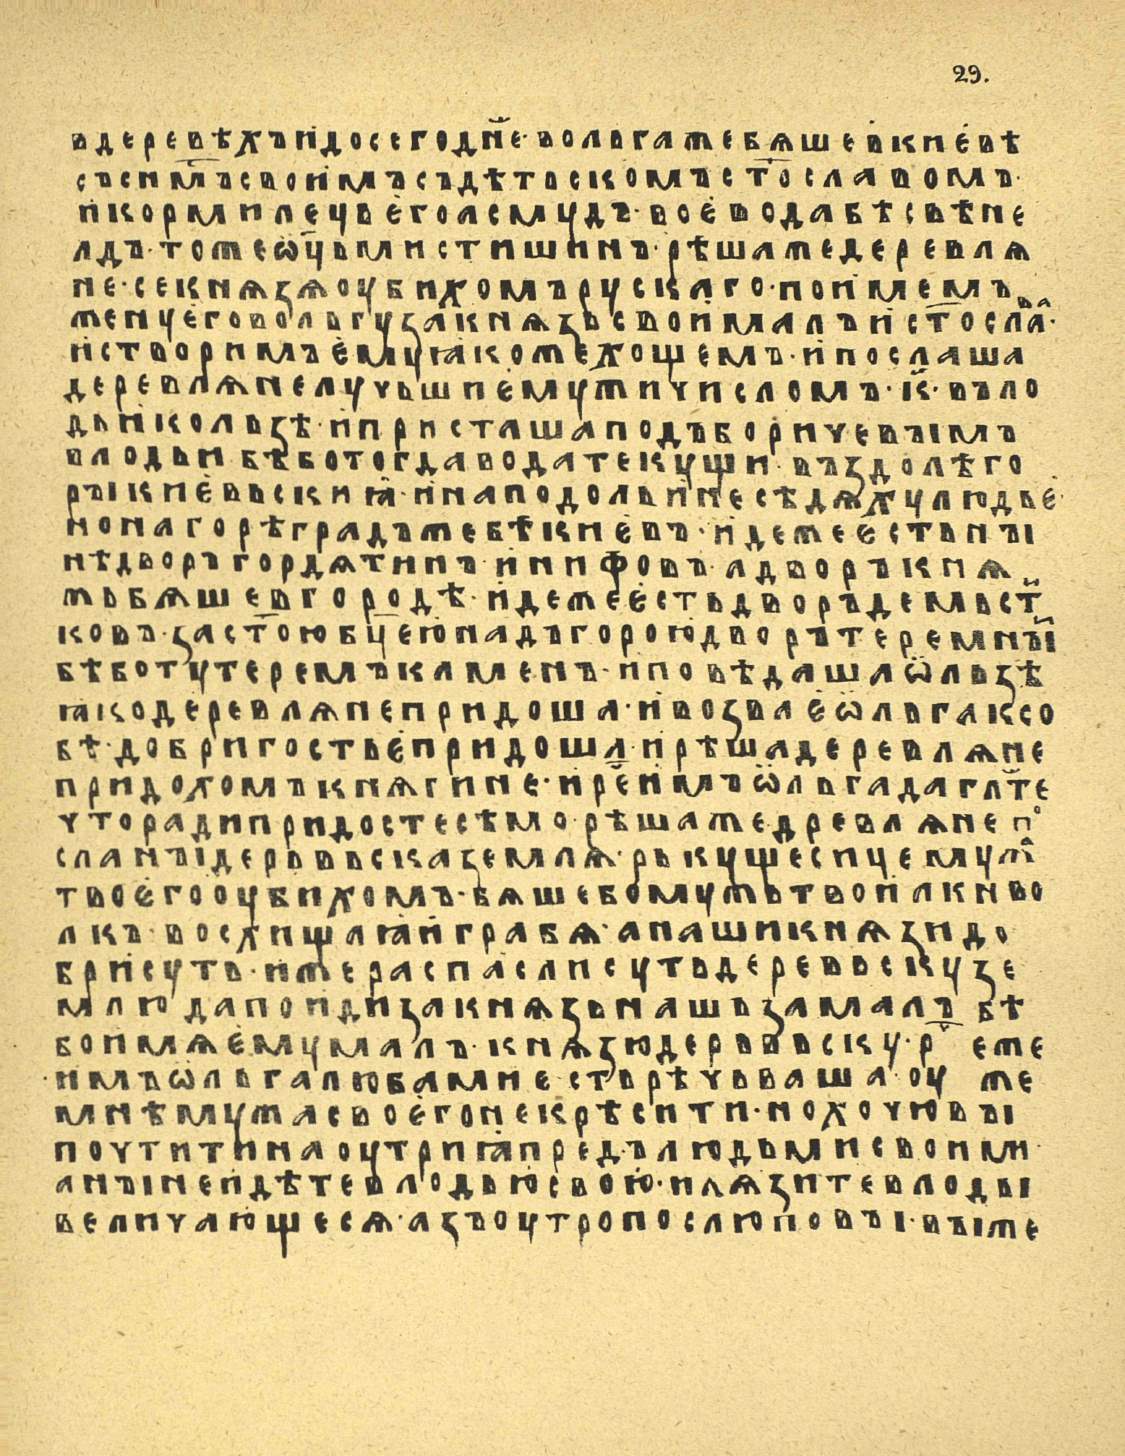 29.
в деревѣхъ и до сего днⷭ҇е · вольга же бѧше в киевѣ
съ снм҃ъ своимъ съ дѣтьскомъ ст҃ославомъ ·
и кормилець его асмудъ · воевода бѣ свѣне
лдъ · тоже ѡц҃ь мистишинъ · рѣша же деревлѧ
не · се кнѧзѧ оубихомъ рускаго · поимемъ
жену его вольгу за кнѧзь свои малъ и ст҃ослава ·
и створимъ ему ꙗко же хощемъ · и послаша
деревлѧне лучьшиѣ мужи числомъ · к҃ · въ ло
дьи к ользѣ · и присташа подъ боричевъімъ
в лодьи бѣ бо тогда вода текущи · въздолѣ го
ръі киевьскиꙗ · и на подольи не сѣдѧху людье
но на горѣ градъ же бѣ киевъ · идеже есть нъі
нѣ дворъ гордѧтинъ и нифовъ · а дворъ кнѧ
жь бѧше в городѣ · идеже есть дворъ демьсти
ковъ · за ст҃ою бц҃ею надъ горою дворъ теремнъіи
бѣ бо ту теремъ каменъ · и повѣдаша ѡльзѣ
ꙗко деревлѧне придоша · и возва е ѡльга к со
бѣ · добри гостье придоша · и рѣша деревлѧне
придохомъ кнѧгине · и реⷱ҇ имъ ѡльга да гл҃те
что ради придосте сѣмо · рѣша же древлѧне по
сла нъі дерьвьска землѧ · рькуще сице мужа
твоего оубихомъ · бѧше бо мужь твои аки во
лкъ · восхищаꙗ и грабѧ · а наши кнѧзи до
бри суть · иже распасли суть деревьску зе
млю да поиди за кнѧзь нашь за малъ бѣ
бо имѧ ему малъ · кнѧзю дерьвьску · реⷱ҇ же
имъ ѡльга люба ми есть рѣчь ваша · оуже
мнѣ мужа своего не крѣсити · но хочю въі
почтити наоутриꙗ предъ людьми своими
а нъінѣ идѣте в лодью свою · и лѧзите в лодьи
величающесѧ · азъ оутро послю по въі · въі же